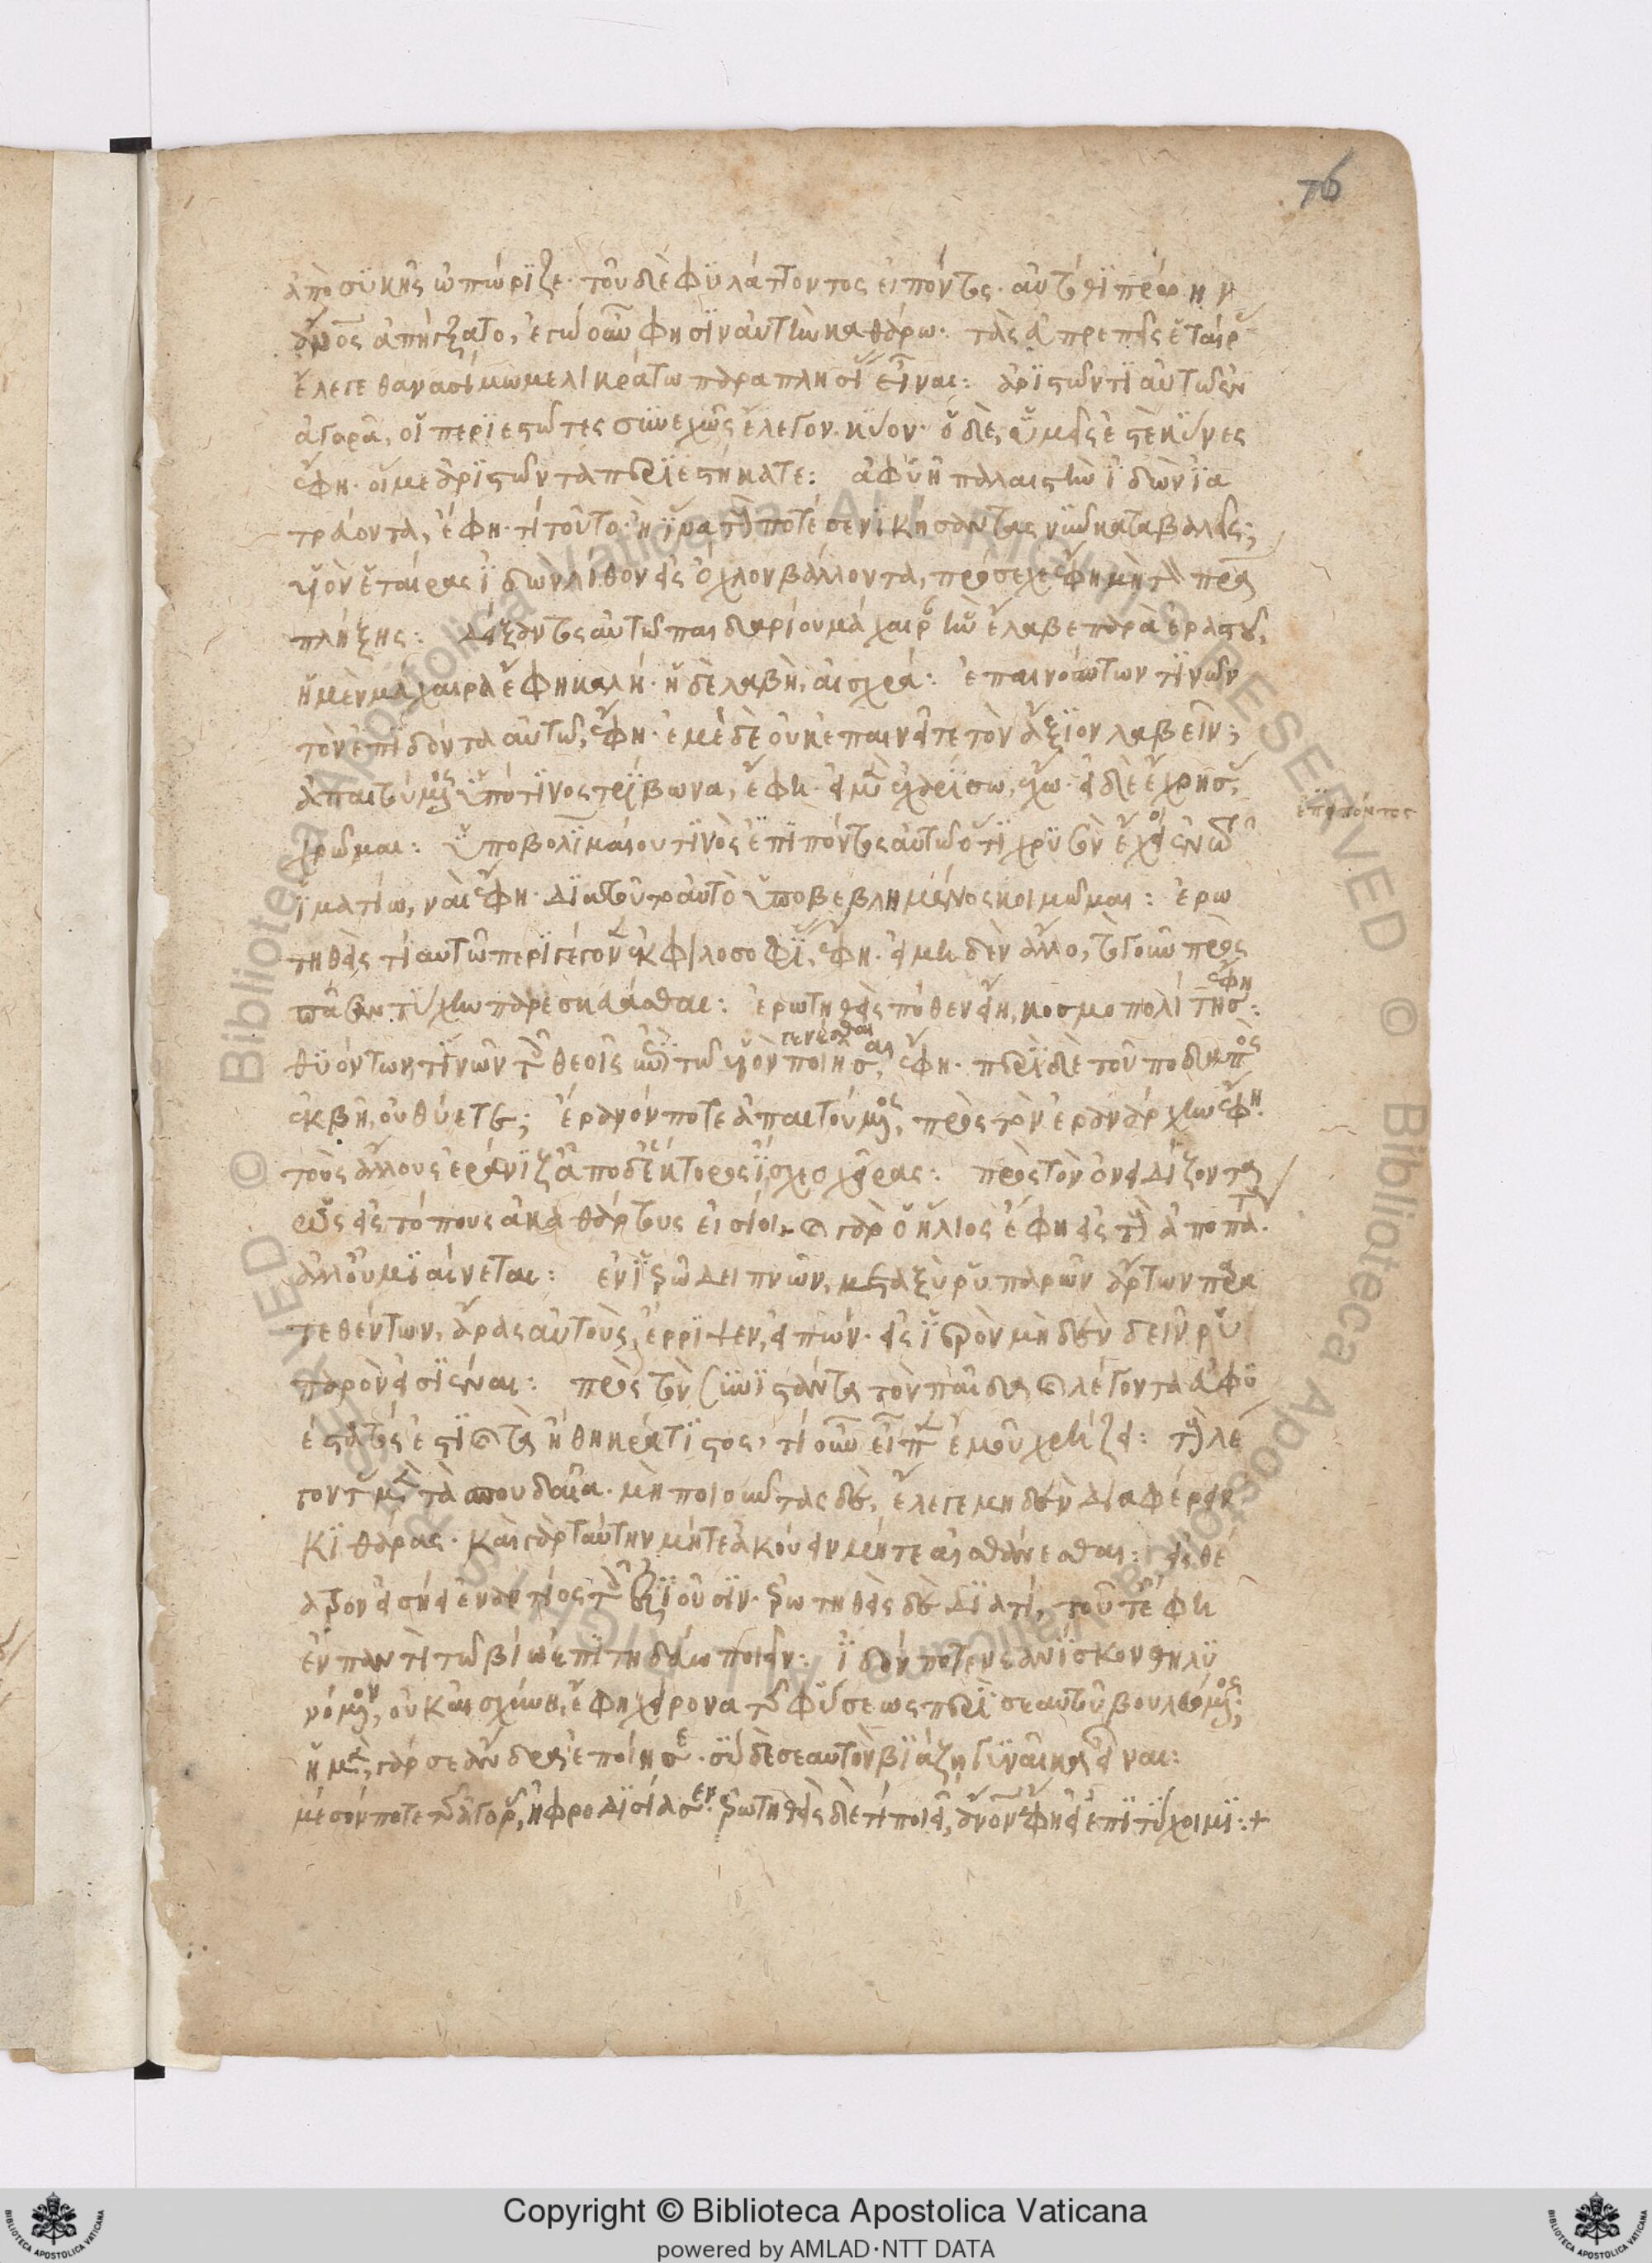 76
ἀπὸ συκῆς ὠπώριζε· τοῦ δὲ φυλάττοντος εἰπόντος· αὐτόθι πρώην
ἄνος ἀπήγξατο, ἐγὼ οὖν φησὶν αὐτὴν καθάρω· τὰς εὐπρεπεῖς ἑταίρ
ἔλεγε θανασίμω μελικράτω παραπλησί εἶναι: ἀριστῶντι αὐτῶ ἐν
ἀγορᾶ, οἱ περιεστῶτες συνεχῶς ἔλεγον· κύον· ὁ δὲ, ὑμεῖς ἐστὲ κύνες
ἔφη· οἵ με ἀριστῶντα περιεστήκατε: ἀφυῆ παλαιστὴν ἰδὼν ἰα
τρεύοντα, ἔφη· τί τοῦτο· ἢ ἵνα τοὺς ποτέ σε νικήσαντας νῦν καταβαλεῖς;
υἱὸν ἑταίρας ἰδὼν λίθον εἰς ὄχλον βάλλοντα, πρόσεχε ἔφη μὴ τὸν πρα
πλήξης: δείξαντος αὐτῶ παιδαρίου μάχαιρ ἣν ἔλαβε παρὰ ἐραστοῦ,
ἡ μὲν μάχαιρα ἔφη καλή· ἡ δὲ λαβὴ, αἰσχρά: ἐπαινούντων τινῶν
τὸν ἐπιδόντα αὐτῶ, ἔφη· ἐμὲ δὲ οὐκ ἐπαινεῖτε τὸν ἄξιον λαβεῖν;
ἀπαιτούμενος ὑπό τινος τρίβωνα, ἔφη· εἰ μὲν ἐχαρίσω, ἔχω· εἰ δὲ ἔχρησ,
χρῶμαι: ὑποβολιμαίου τινὸς εἰπόντος αὐτῶ ὅτι χρυσὸν ἔχοι ἐν τῶ
εἰπόντος
ἱματίω, ναὶ ἔφη· διὰ τοῦτο αὐτὸ ὑποβεβλημένος κοιμῶμαι: ἐρω
τηθεὶς τί αὐτῶ περιγέγον ἐκ φιλοσοφί, ἔφη· εἰ μηδὲν ἄλλο, τὸ γοῦν πρὸς
πᾶσαν τύχην παρεσκευάσθαι: ἐρωτηθεὶς πόθεν εἴη, κοσμοπολίτης ἔφη:
θυόντων τινῶν τοῖς θεοῖς ἐπὶ τῶ υἱὸν γενέσθαι ποιῆσαι, ἔφη· περὶ δὲ τοῦ ποδαπὸς
ἐκβῆ, οὐ θύετε; ἔρανόν ποτε ἀπαιτούμενος, πρὸς τὸν ἐρανάρχην ἔφη·
τοὺς ἄλλους ἐράνιζ ἀπὸ δ' ἕκτορος ἴσχεο χεῖρας: πρὸς τὸν ὀνειδίζοντα
ὡς εἰς τόπους ἀκαθάρτους εἰσίοι, καὶ γὰρ ὁ ἥλιος ἔφη εἰς τοὺς ἀποπά
ἀλλ' οὐ μιαίνεται: ἐν ἱερῶ δειπνῶν, μεταξὺ ῥυπαρῶν ἄρτων παρα
τεθέντων, ἄρας αὐτοὺς ἔρριψεν, εἰπών· εἰς ἱερὸν μηδὲν δεῖν ῥυ
παρὸν εἰσιέναι: πρὸς τὸν συνιστάντα τὸν παῖδα καὶ λέγοντα ὡς εὐφυ
έστατός ἐστι καὶ τὰ ἤθη κράτιστος, τί οὖν εἶπεν ἐμοῦ χρήζει: τοὺς λέ
γοντας μὲν τὰ σπουδαῖα· μὴ ποιοῦντας δὲ, ἔλεγε μηδὲν διαφέρειν
κιθάρας· καὶ γὰρ ταύτην μήτε ἀκούειν μήτε αἰσθάνεσθαι: εἰς θέ
ατρον εἰσήει ἐναντίος τοῖς ἐξιοῦσιν· ἐρωτηθεὶς δὲ διατί, τοῦτο ἔφη
ἐν παντὶ τῶ βίω ἐπιτηδεύω ποιεῖν: ἰδών ποτε νεανίσκον θηλυ
νόμενον, οὐκ αἰσχύνη, ἔφη χείρονα τῆς φύσεως περὶ σεαυτοῦ βουλευόμενος;
ἡ μὲν γάρ σε ἄνδρα ἐποίησε· σὺ δὲ σεαυτὸν βιάζη γυναῖκα εἶναι:
μέσον ποτε τῆς ἀγορ, ἠφροδισίασεν· ἐρωτηθεὶς δὲ τί ποιεῖ, ἄνον ἔφη εἰ ἐπιτύχοιμι:+
Copyright © Biblioteca Apostolica Vaticana
powered by AMLAD·NTT DATA